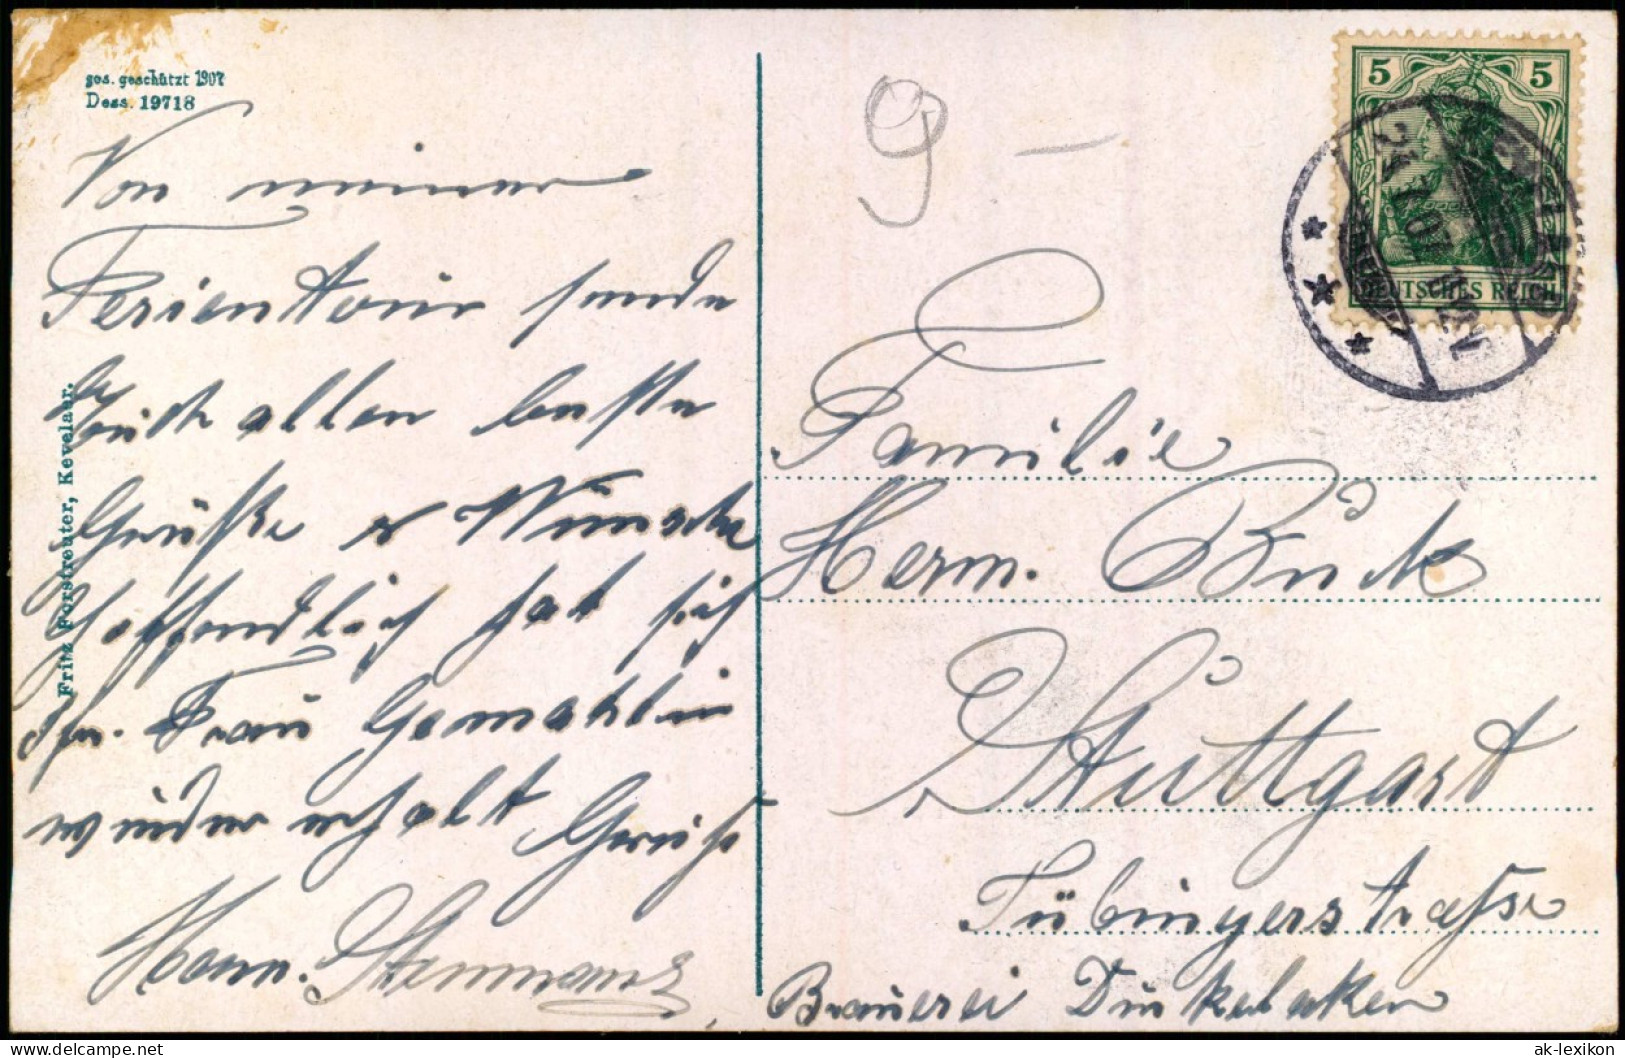 ges. geschützt 1907
Dess. 19718
Von meiner
Ferientour sende
Euch allen beste
Grüße & Wünsche
hoffendlich hat sich
Ihr. Frau Gemahlin
wieder erholt Gruß
Herm.
Fritz Forstreuter, Kevelaer.
9 –
5 5
DEUTSCHES REICH
24.7.07
Familie
Herm. Buck
Stuttgart
Tübingerstraße
Brauerei Dinkelaken
delcampe.net
The Collector's Marketplace
ak-lexikon